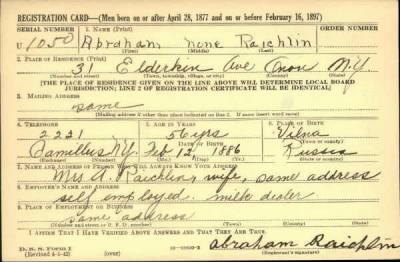 REGISTRATION CARD—(Men born on or after April 28, 1877 and on or before February 16, 1897)
SERIAL NUMBER 1. NAME (Print) ORDER NUMBER
U 1050 Abraham none Raichlin
(First) (Middle) (Last)
2. PLACE OF RESIDENCE (Print)
31 Elderkin Ave Onon N.Y.
(Number and street) (Town, township, village, or city) (County) (State)
[THE PLACE OF RESIDENCE GIVEN ON THE LINE ABOVE WILL DETERMINE LOCAL BOARD
JURISDICTION; LINE 2 OF REGISTRATION CERTIFICATE WILL BE IDENTICAL]
3. MAILING ADDRESS
same
(Mailing address if other than place indicated on line 2. If same insert word same)
4. TELEPHONE 5. AGE IN YEARS 6. PLACE OF BIRTH
2221 56 yrs Vilna
DATE OF BIRTH (Town or county)
Camillus N.Y. Feb 12, 1886 Russia
(Mo.) (Day) (Yr.) (State or country)
7. NAME AND ADDRESS OF PERSON WHO WILL ALWAYS KNOW YOUR ADDRESS
Mrs A. Raichlin, wife, same address
8. EMPLOYER'S NAME AND ADDRESS
self employed. milk dealer
9. PLACE OF EMPLOYMENT OR BUSINESS
same address
(Number and street or R. F. D. number) (Town) (County) (State)
I AFFIRM THAT I HAVE VERIFIED ABOVE ANSWERS AND THAT THEY ARE TRUE.
D. S. S. Form 1
(Revised 4-1-42) (over) abraham Raichlin
(Registrant's signature)